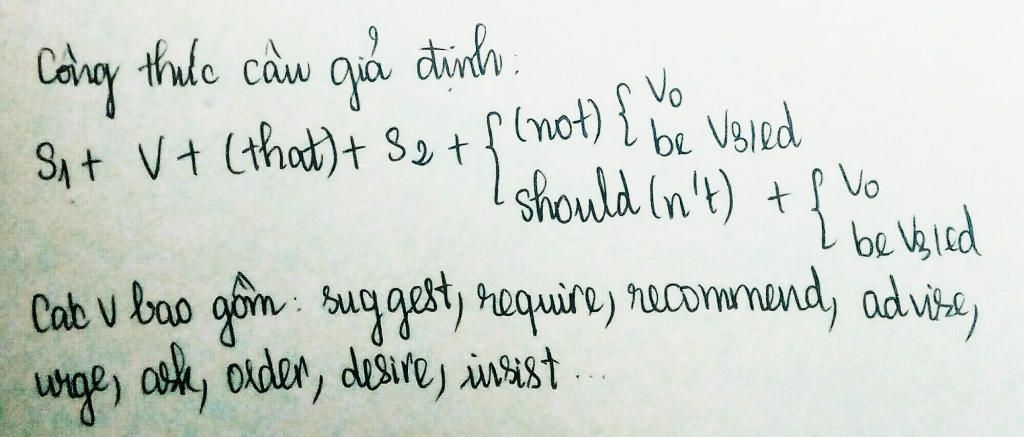 Công thức câu giả định:
S1 + V + (that) + S2 + { (not) { V0
be V3/ed
should (n't) + { V0
be V3/ed
Các V bao gồm: suggest, require, recommend, advise,
urge, ask, order, desire, insist ...